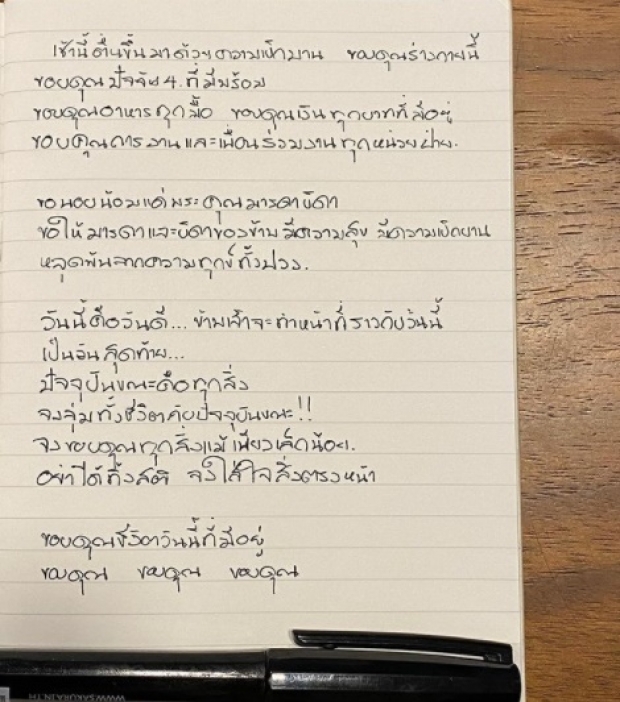 เช้านี้ตื่นขึ้นมาด้วยความเบิกบาน ขอบคุณร่างกายนี้
ขอบคุณปัจจัย 4 ที่มีพร้อม
ขอบคุณอาหารทุกมื้อ ขอบคุณเงินทุกบาทที่มีอยู่
ขอบคุณการงานและเพื่อนร่วมงานทุกหน่วยฝ่าย.
ขอนอบน้อมแด่พระคุณมารดาบิดา
ขอให้มารดาและบิดาของข้าฯ มีความสุข มีความเบิกบาน
หลุดพ้นจากความทุกข์ทั้งปวง.
วันนี้คือวันดี... ข้าพเจ้าจะทำหน้าที่ราวกับวันนี้
เป็นวันสุดท้าย...
ปัจจุบันขณะคือทุกสิ่ง
จงทุ่มทั้งชีวิตกับปัจจุบันขณะ!!
จงขอบคุณทุกสิ่งแม้เพียงเล็กน้อย.
อย่าได้ทิ้งสติ จงใส่ใจสิ่งตรงหน้า
ขอบคุณชีวิตวันนี้ที่มีอยู่
ขอบคุณ ขอบคุณ ขอบคุณ
WWW.SAKURA.IN.TH